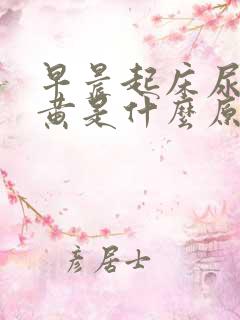 早晨起床尿
黄是什麼原
彦居士